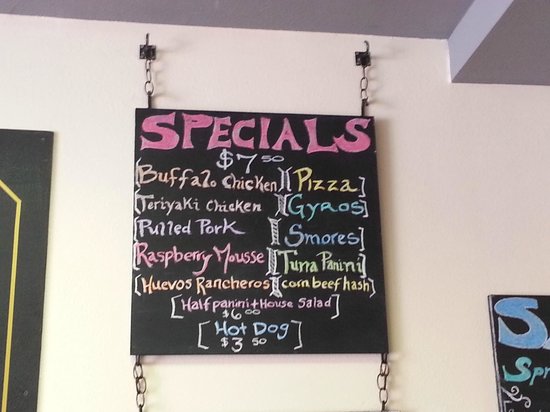 SPECIALS
$7.50
Buffalo Chicken Pizza
Teriyaki Chicken Gyros
Pulled Pork Smores
Raspberry Mousse Tuna Panini
Huevos Rancheros corn beef hash
Half panini + House Salad
$6.00
Hot Dog
$3.50
S
Spr